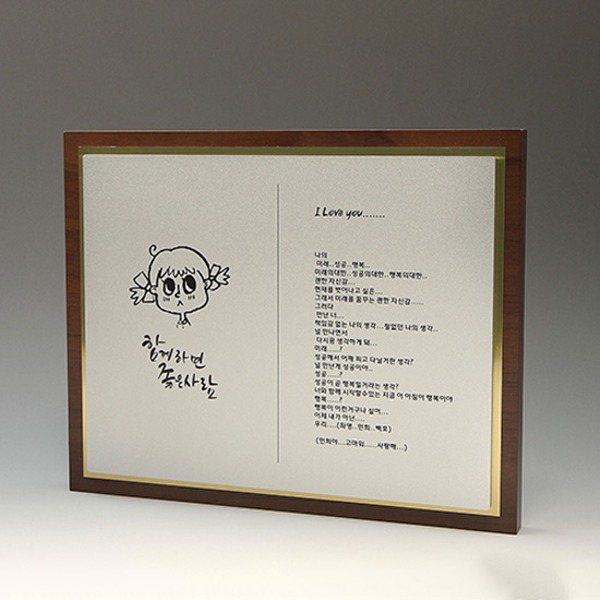 함께하면
좋은사람
I Love you.......
나의
미래...성공..행복...
미래의대한...성공의대한...행복의대한..
괜한 자신감....
현재를 벗어나고 싶은....
그래서 미래를 꿈꾸는 괜한 자신감......
그러다
만난 너....
책임감 없는 나의 생각....철없던 나의 생각..
널 만나면서
다시금 생각하게 돼....
미래......?
성공해서 어깨 피고 다닐거란 생각?
널 만난게 성공이야..
성공......?
성공이 곧 행복일거라는 생각?
너와 함께 시작할수있는 지금 이 아침이 행복이야
행복......?
행복이 이런거구나 싶어....
이제 내가 아닌.....
우리.....(화영..민희..백호)
(민희야....고마워......사랑해...)